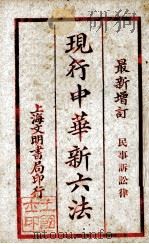 最新增訂
民事訴訟律
現行中華新六法
上海文明書局印行